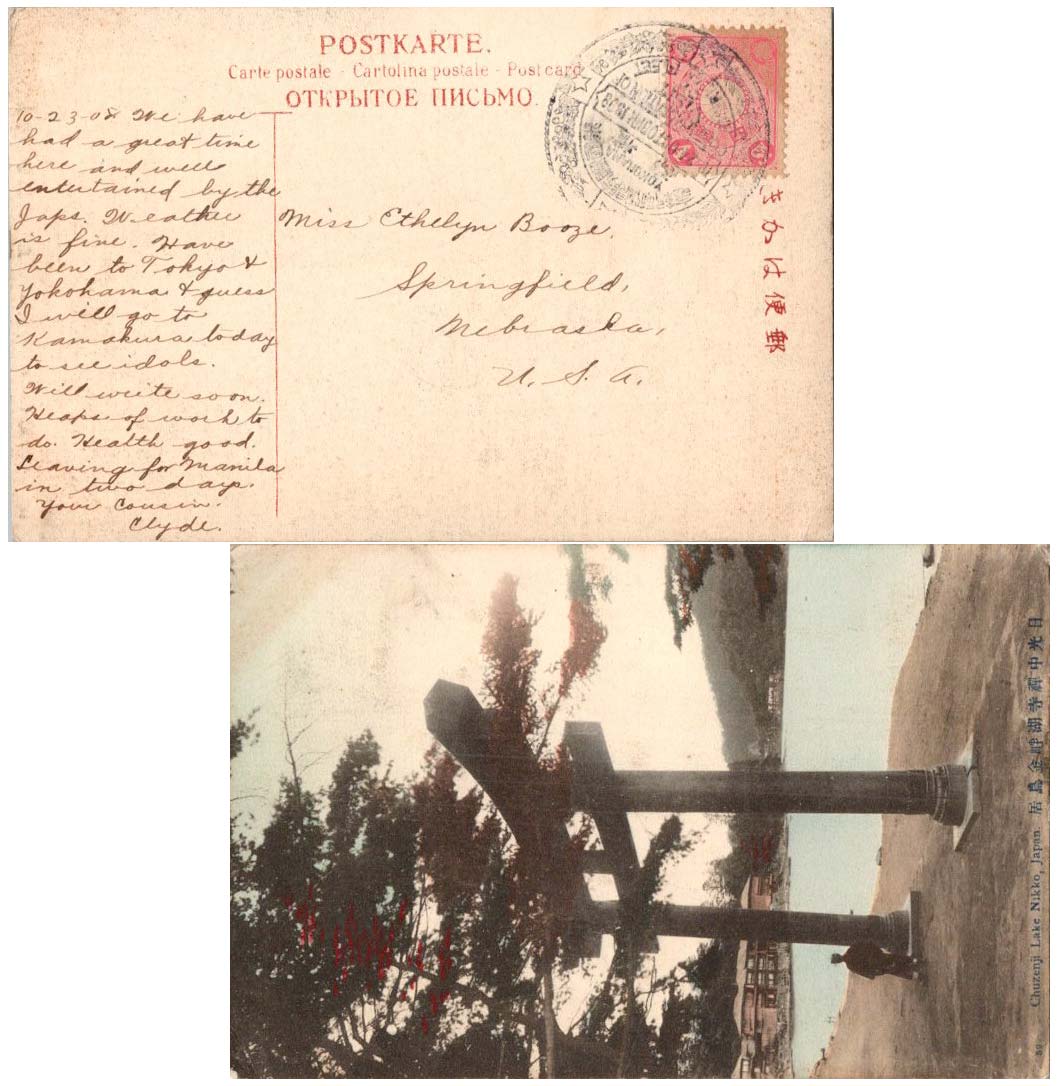 POSTKARTE.
Carte postale - Cartolina postale - Post card
ОТКРЫТОЕ ПИСЬМО.
10-23-08 We have
had a great time
here and well
entertained by the
Japs. Weather
is fine. Have
been to Tokyo &
Yokohama & guess
I will go to
Kamakura today
to see idols.
Will write soon.
Heaps of work to
do. Health good.
Leaving for Manila
in two days.
Your Cousin.
Clyde.
Miss Ethelyn Booze,
Springfield,
Nebraska,
U. S. A.
郵便はかき
FLEET
YOKOHAMA
日光中禅寺湖畔金鳥居
Chuzenji Lake Nikko, Japan.